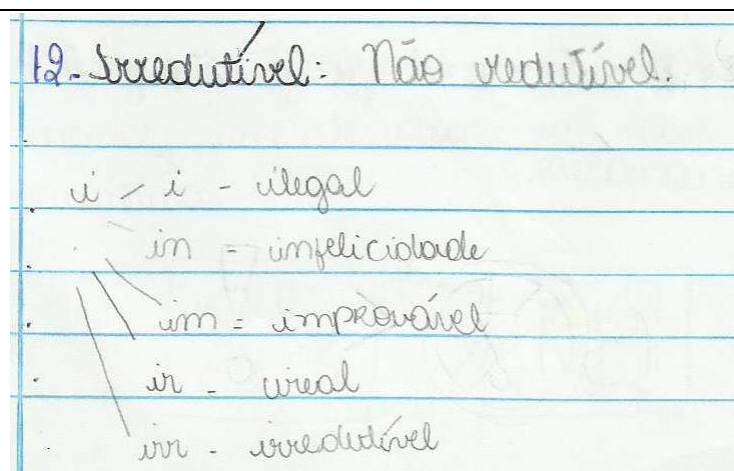 12- Irredutível: Não redutível.
i - i - ilegal
in - infelicidade
im = improvável
ir - irreal
irr - irredutível